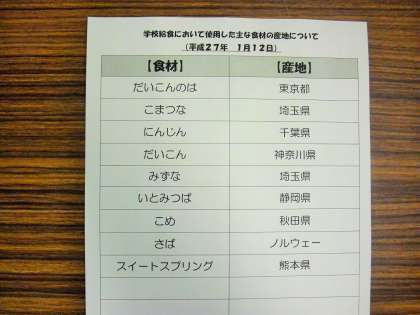 学校給食において使用した主な食材の産地について
(平成27年 1月12日)
【食材】 【産地】
だいこんのは 東京都
こまつな 埼玉県
にんじん 千葉県
だいこん 神奈川県
みずな 埼玉県
いとみつば 静岡県
こめ 秋田県
さば ノルウェー
スイートスプリング 熊本県